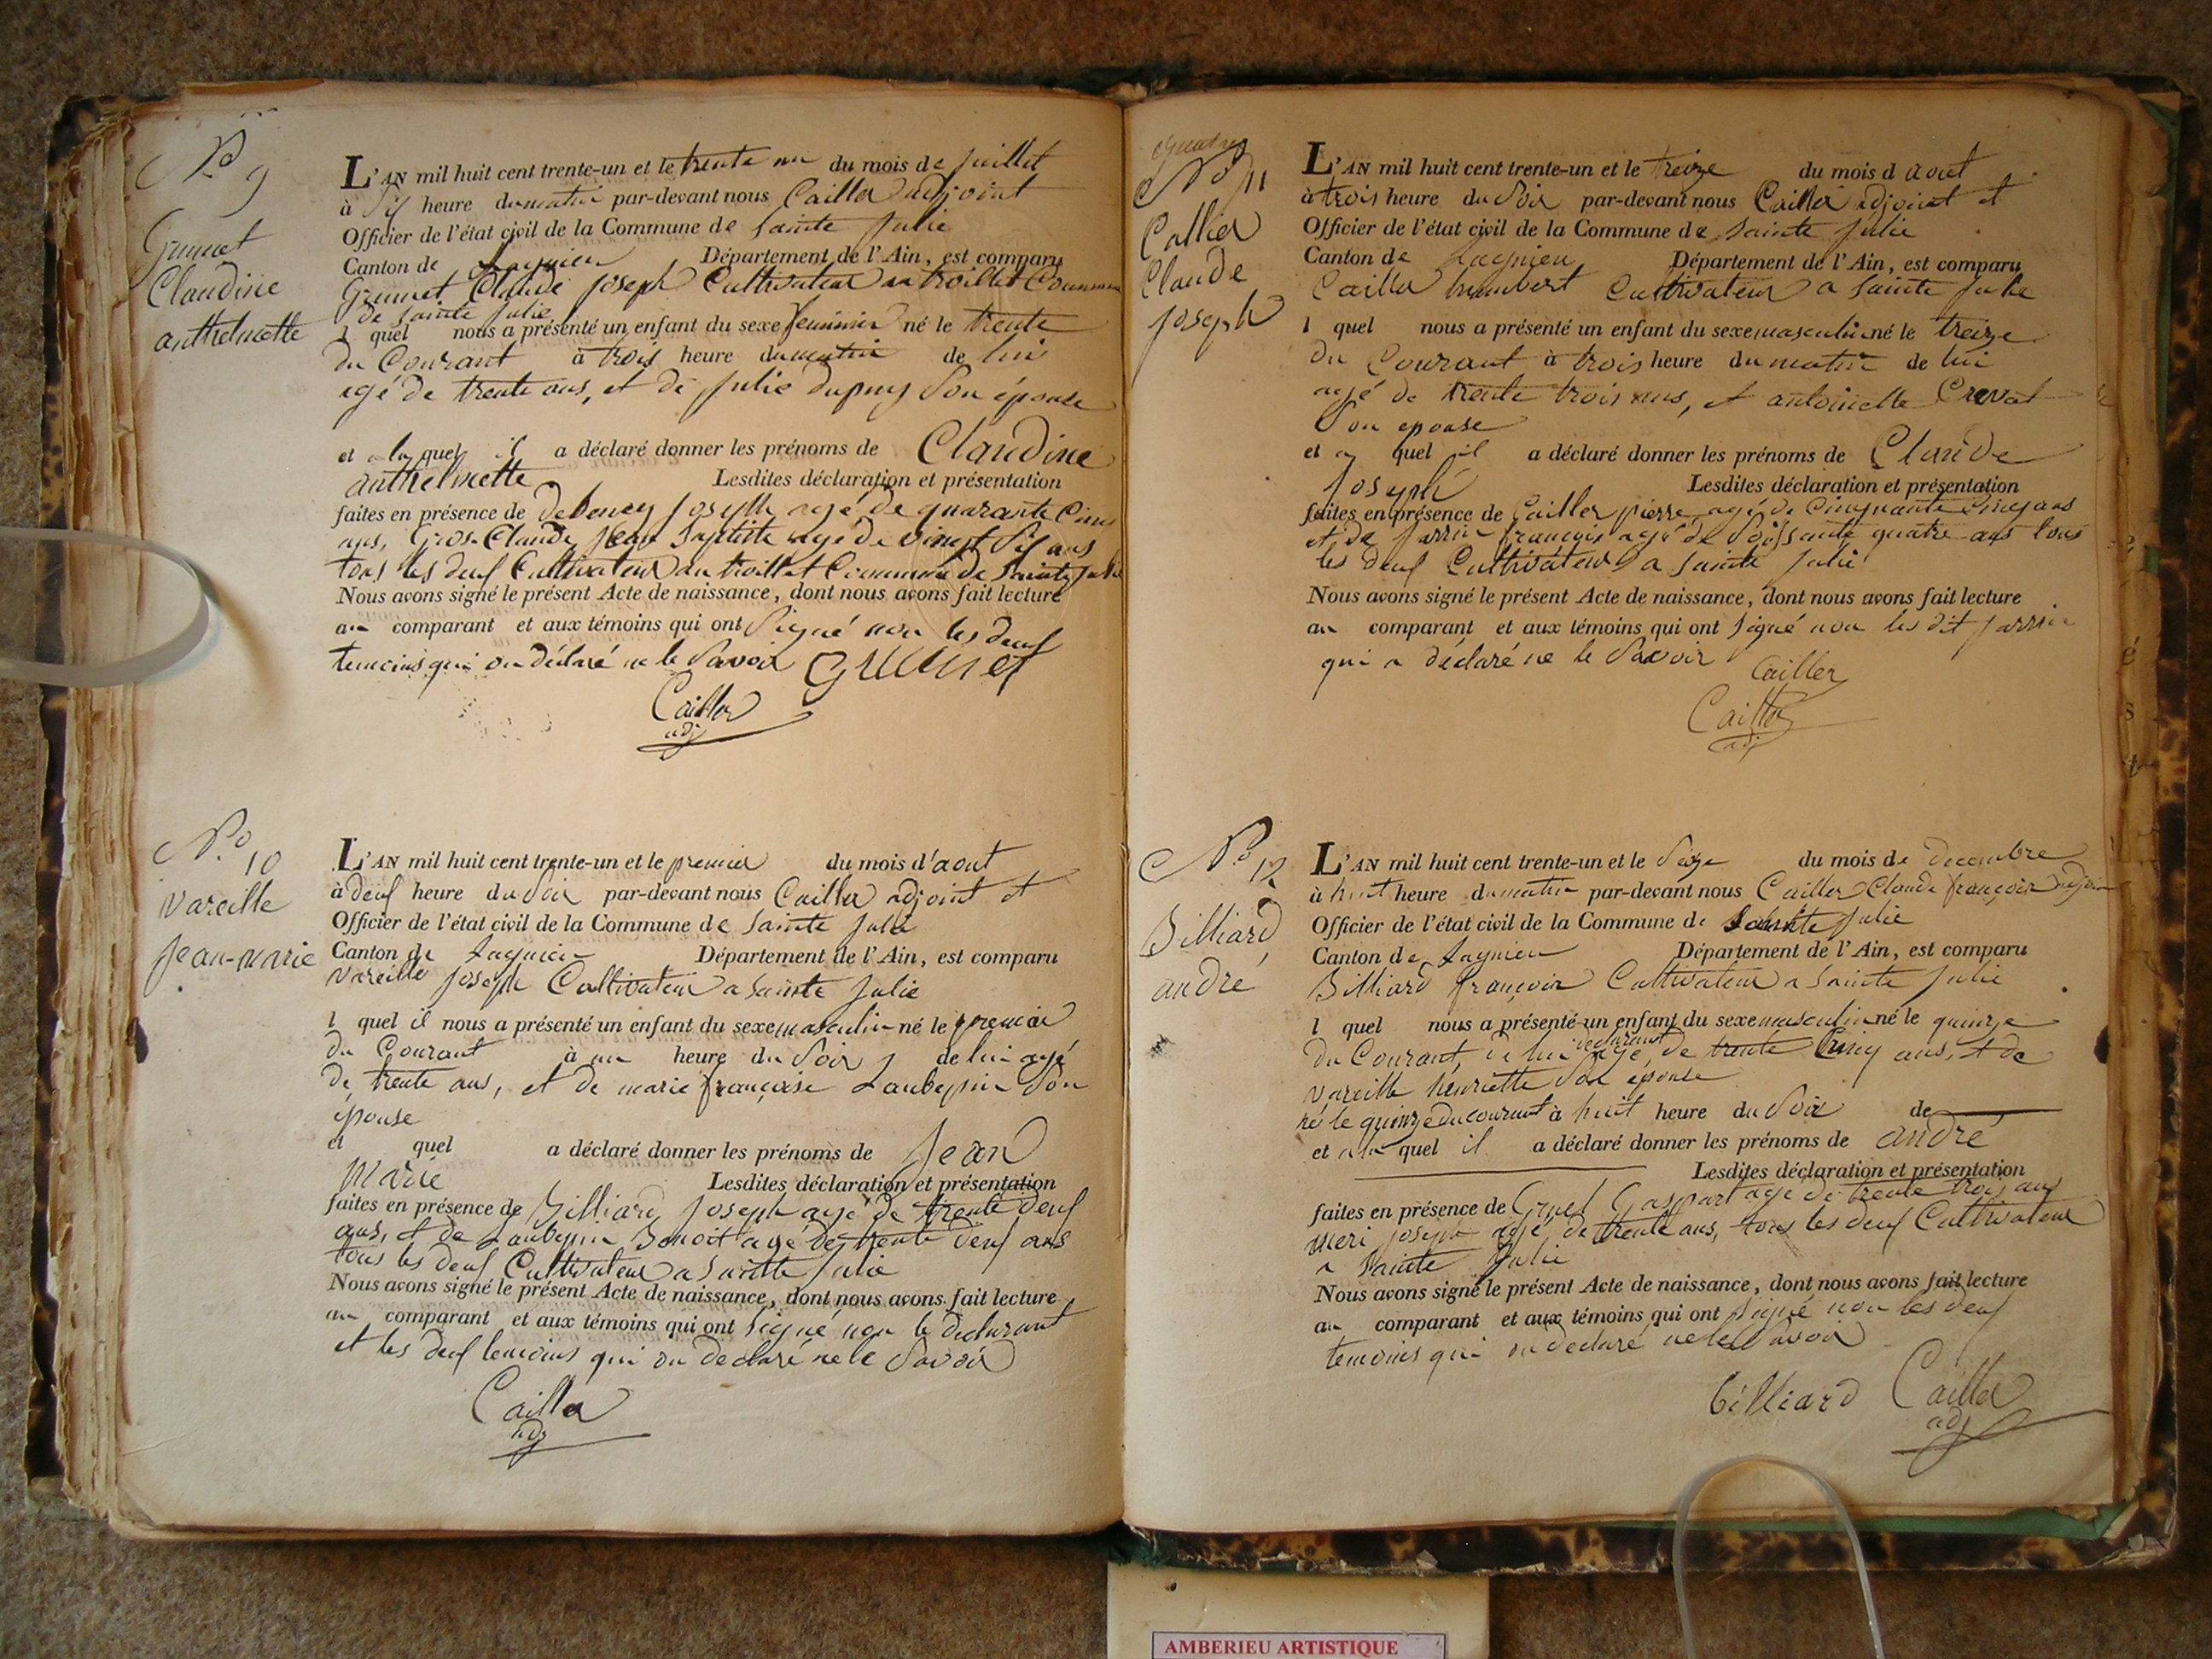 No 9
Grumet
Claudine
anthelmette
L'AN mil huit cent trente-un et le trente un du mois de juillet
à Six heure du matin par-devant nous Cailler adjoint
Officier de l'état civil de la Commune de Sainte Julie
Canton de Lagnieu Département de l'Ain, est comparu
Grumet Claude joseph Cultivateur au troillet Commune
de Sainte Julie
l quel nous a présenté un enfant du sexe feminin né le trente
du Courant à trois heure du matin de lui
agé de trente ans, et de julie dupuy Son épouse
et a la quel il a déclaré donner les prénoms de Claudine
anthelmette Lesdites déclaration et présentation
faites en présence de joseph agé de quarante Cinq
ans, Gros-Claude jean Baptiste agé de vingt Six ans
tous les deux Cultivateur au troillet Commune de Sainte Julie
Nous avons signé le présent Acte de naissance, dont nous avons fait lecture
au comparant et aux témoins qui ont Signé non les deux
temoins qui on déclaré ne le Savoir Grumet
Cailler
adj
No. 10
Vareille
jean-marie
L'AN mil huit cent trente-un et le premier du mois d'aout
à deux heure du Soir par-devant nous Cailler adjoint et
Officier de l'état civil de la Commune de Sainte Julie
Canton de Lagnieu Département de l'Ain, est comparu
Vareille joseph Cultivateur a Sainte Julie
l quel il nous a présenté un enfant du sexe masculin né le premier
du Courant à un heure du Soir de lui agé
de trente ans, et de marie françoise Laubepin Son
épouse
et quel a déclaré donner les prénoms de Jean
Marie Lesdites déclaration et présentation
faites en présence de Billiard joseph agé de trente deux
ans, et de Laubepin Benoit agé de trente deux ans
tous les deux Cultivateur a Sainte Julie
Nous avons signé le présent Acte de naissance, dont nous avons fait lecture
au comparant et aux témoins qui ont Signé non le declarant
et les deux temoins qui on declaré ne le Savoir
Cailler
adj
No 11
Callier
Claude
joseph
L'AN mil huit cent trente-un et le treize du mois d aout
à trois heure du Soir par-devant nous Cailler adjoint et
Officier de l'état civil de la Commune de Sainte Julie
Canton de Lagnieu Département de l'Ain, est comparu
Cailler humbert Cultivateur a Sainte Julie
l quel nous a présenté un enfant du sexe masculin né le treize
du Courant à trois heure du matin de lui
agé de trente trois ans, et antoinette Crevat
Son epouse
et a quel il a déclaré donner les prénoms de Claude
joseph Lesdites déclaration et présentation
faites en présence de Cailler pierre agé de Cinquante Cinq ans
et de jarrin françois agé de Soissante quatre ans tous
les deux Cultivateur a Sainte Julie
Nous avons signé le présent Acte de naissance, dont nous avons fait lecture
au comparant et aux témoins qui ont Signé non les dit jarrin
qui a déclaré ne le Savoir Cailler
Cailler
adj
No 12
Billiard
andré
L'AN mil huit cent trente-un et le Seize du mois de decembre
à huit heure du matin par-devant nous Cailler Claude françois adjoin
Officier de l'état civil de la Commune de Sainte Julie
Canton de Lagnieu Département de l'Ain, est comparu
Billiard françois Cultivateur a Sainte Julie
l quel nous a présenté un enfant du sexe masculin né le quinze
du Courant, de lui declarant agé de trente Cinq ans, et de
Vareille henriette Son épouse
né le quinze du courant à huit heure du Soir de
et a la quel il a déclaré donner les prénoms de andré
Lesdites déclaration et présentation
faites en présence de Gruel Gaspart agé de trente trois ans
meri joseph agé de trente ans, tous les deux Cultivateur
a Sainte Julie
Nous avons signé le présent Acte de naissance, dont nous avons fait lecture
au comparant et aux témoins qui ont Signé non les deux
temoins qui on declaré ne le Savoir
billiard Cailler
adj
AMBERIEU ARTISTIQUE